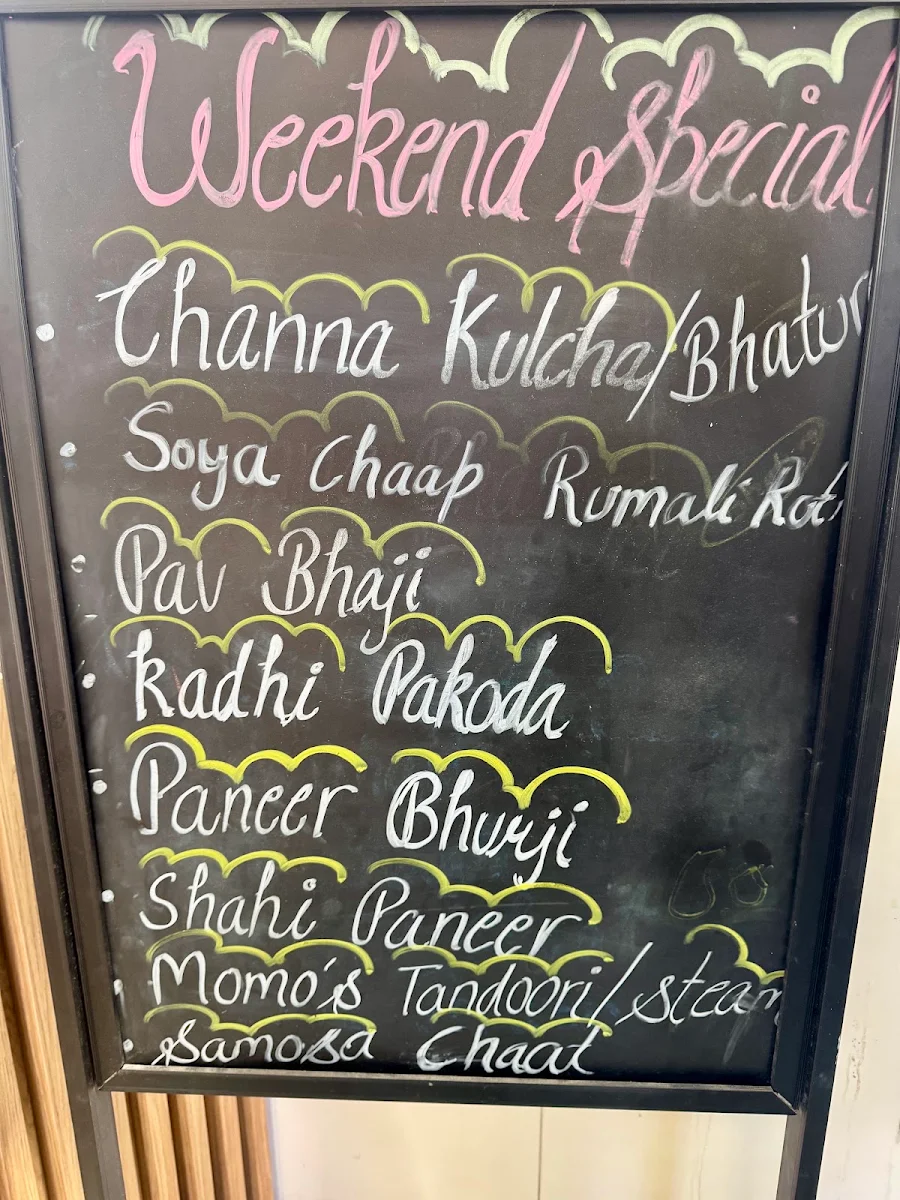 Weekend Special
Channa Kulcha/Bhatur
Soya Chaap Rumali Roti
Pav Bhaji
Kadhi Pakoda
Paneer Bhurji
Shahi Paneer
Momo's Tandoori/Steam
Samosa Chaat